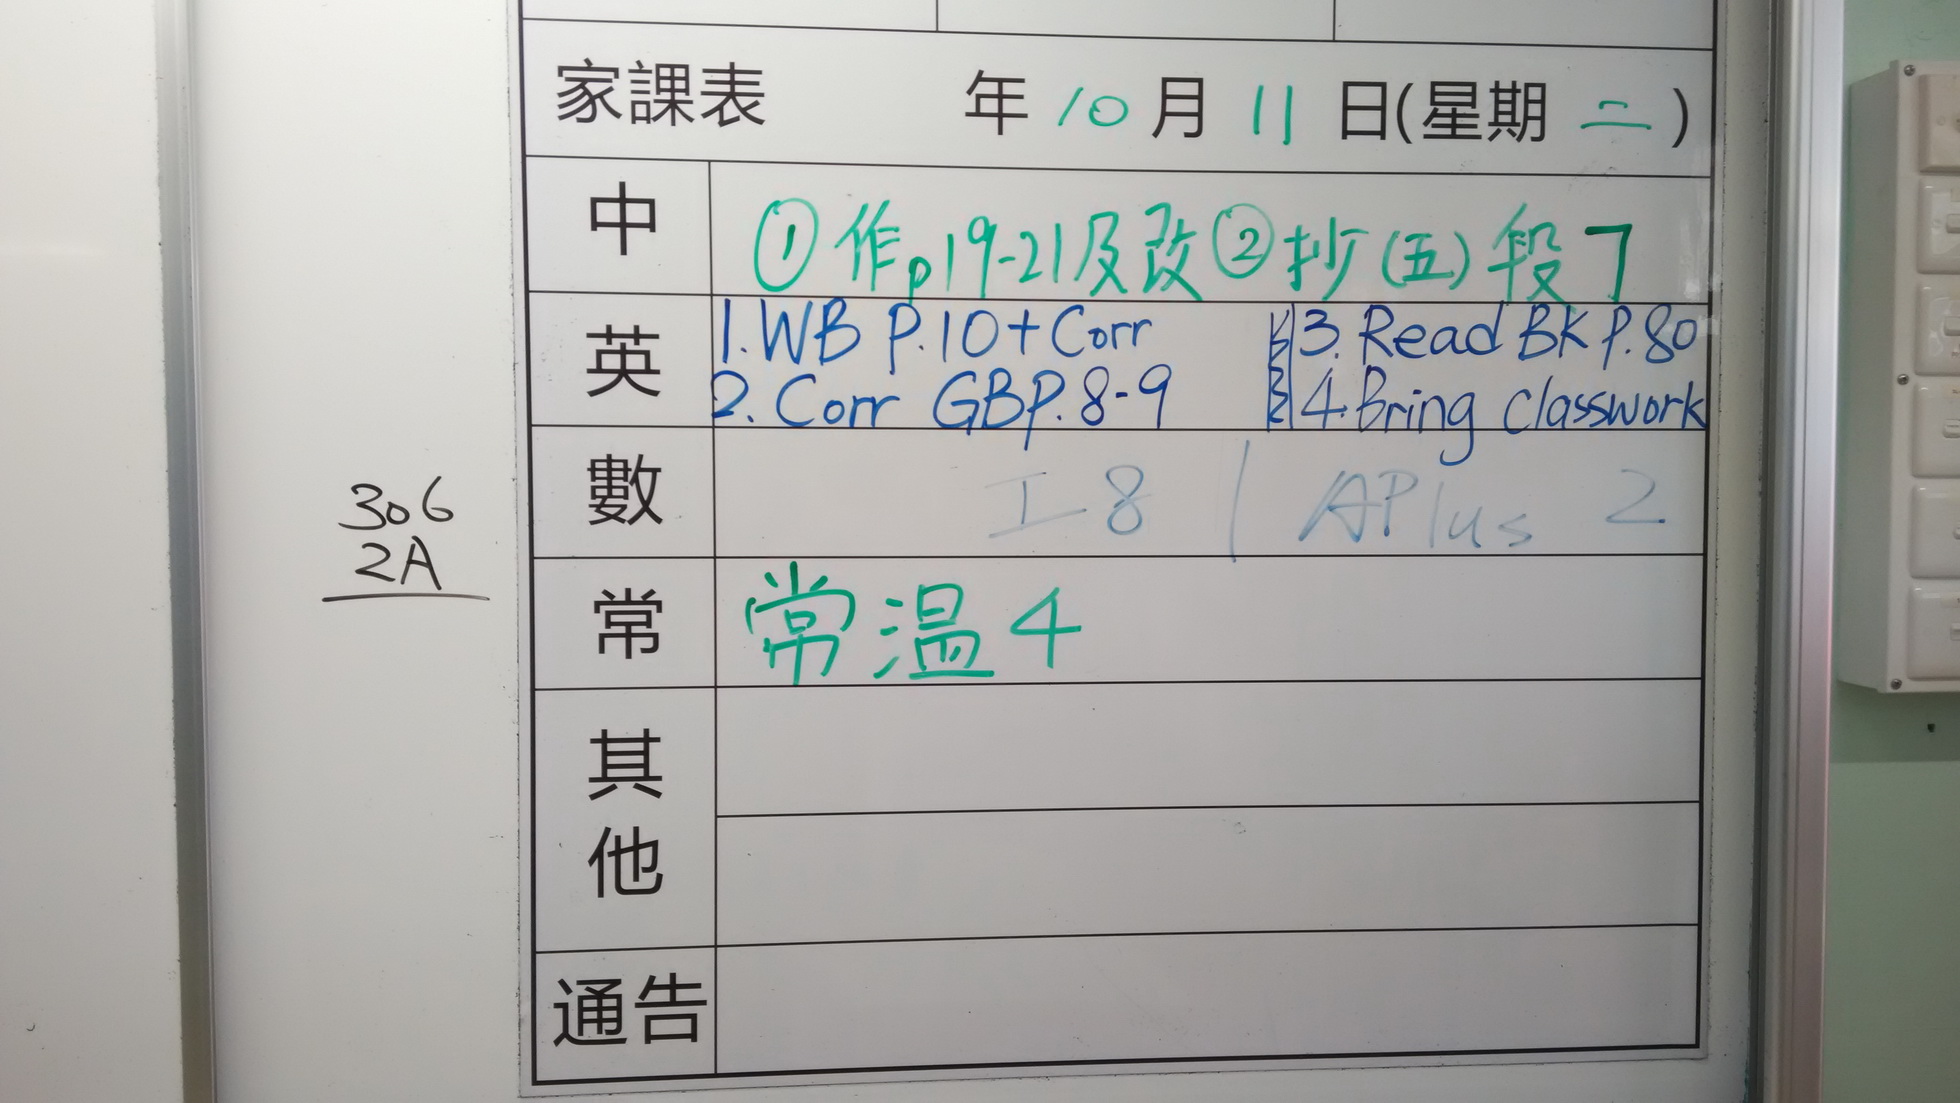 家課表 年 10 月 11 日(星期 二 )
中 ①作p19-21及改②抄(五)段㇕
英 1.WB P.10+Corr 3. Read BK P.80
2. Corr GB P.8-9 4. Bring classwork
數 I 8 | APlus 2
306
2A
常 常温4
其他
通告